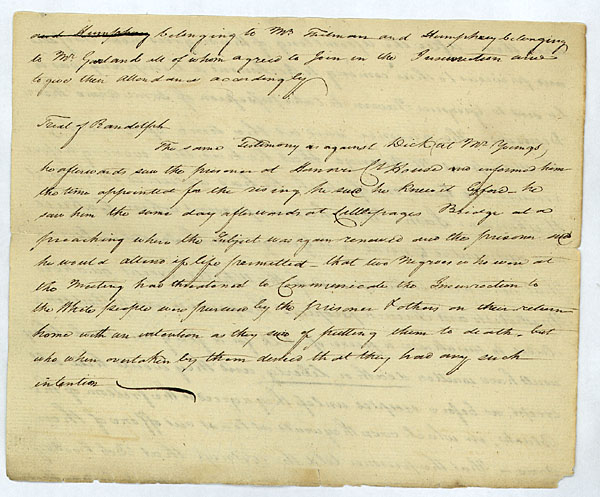 and Humphrey belonging to Mr Tinsman and Humphrey belonging
to Mr Garland all of whom agreed to Join in the Insurrection and
to give their attendance accordingly
Trial of Randolph
The same Testimony as against Dick (at Mr Youngs)
he afterwards saw the prisoner at Hanover Ct House and informed him
the time appointed for the rising, he said he knew it before – he
saw him the same day afterwards at Littlepages Bridge at a
preaching where the Subject was again renewed and the prisoner said
he would attend if life permitted – that two Negroes who were at
the Meeting had threatened to Communicate the Insurrection to
the White people were pursued by the prisoner & others on their return
home with an intention as they said of putting them to death, but
who when overtaken by them denied that they had any such
intention